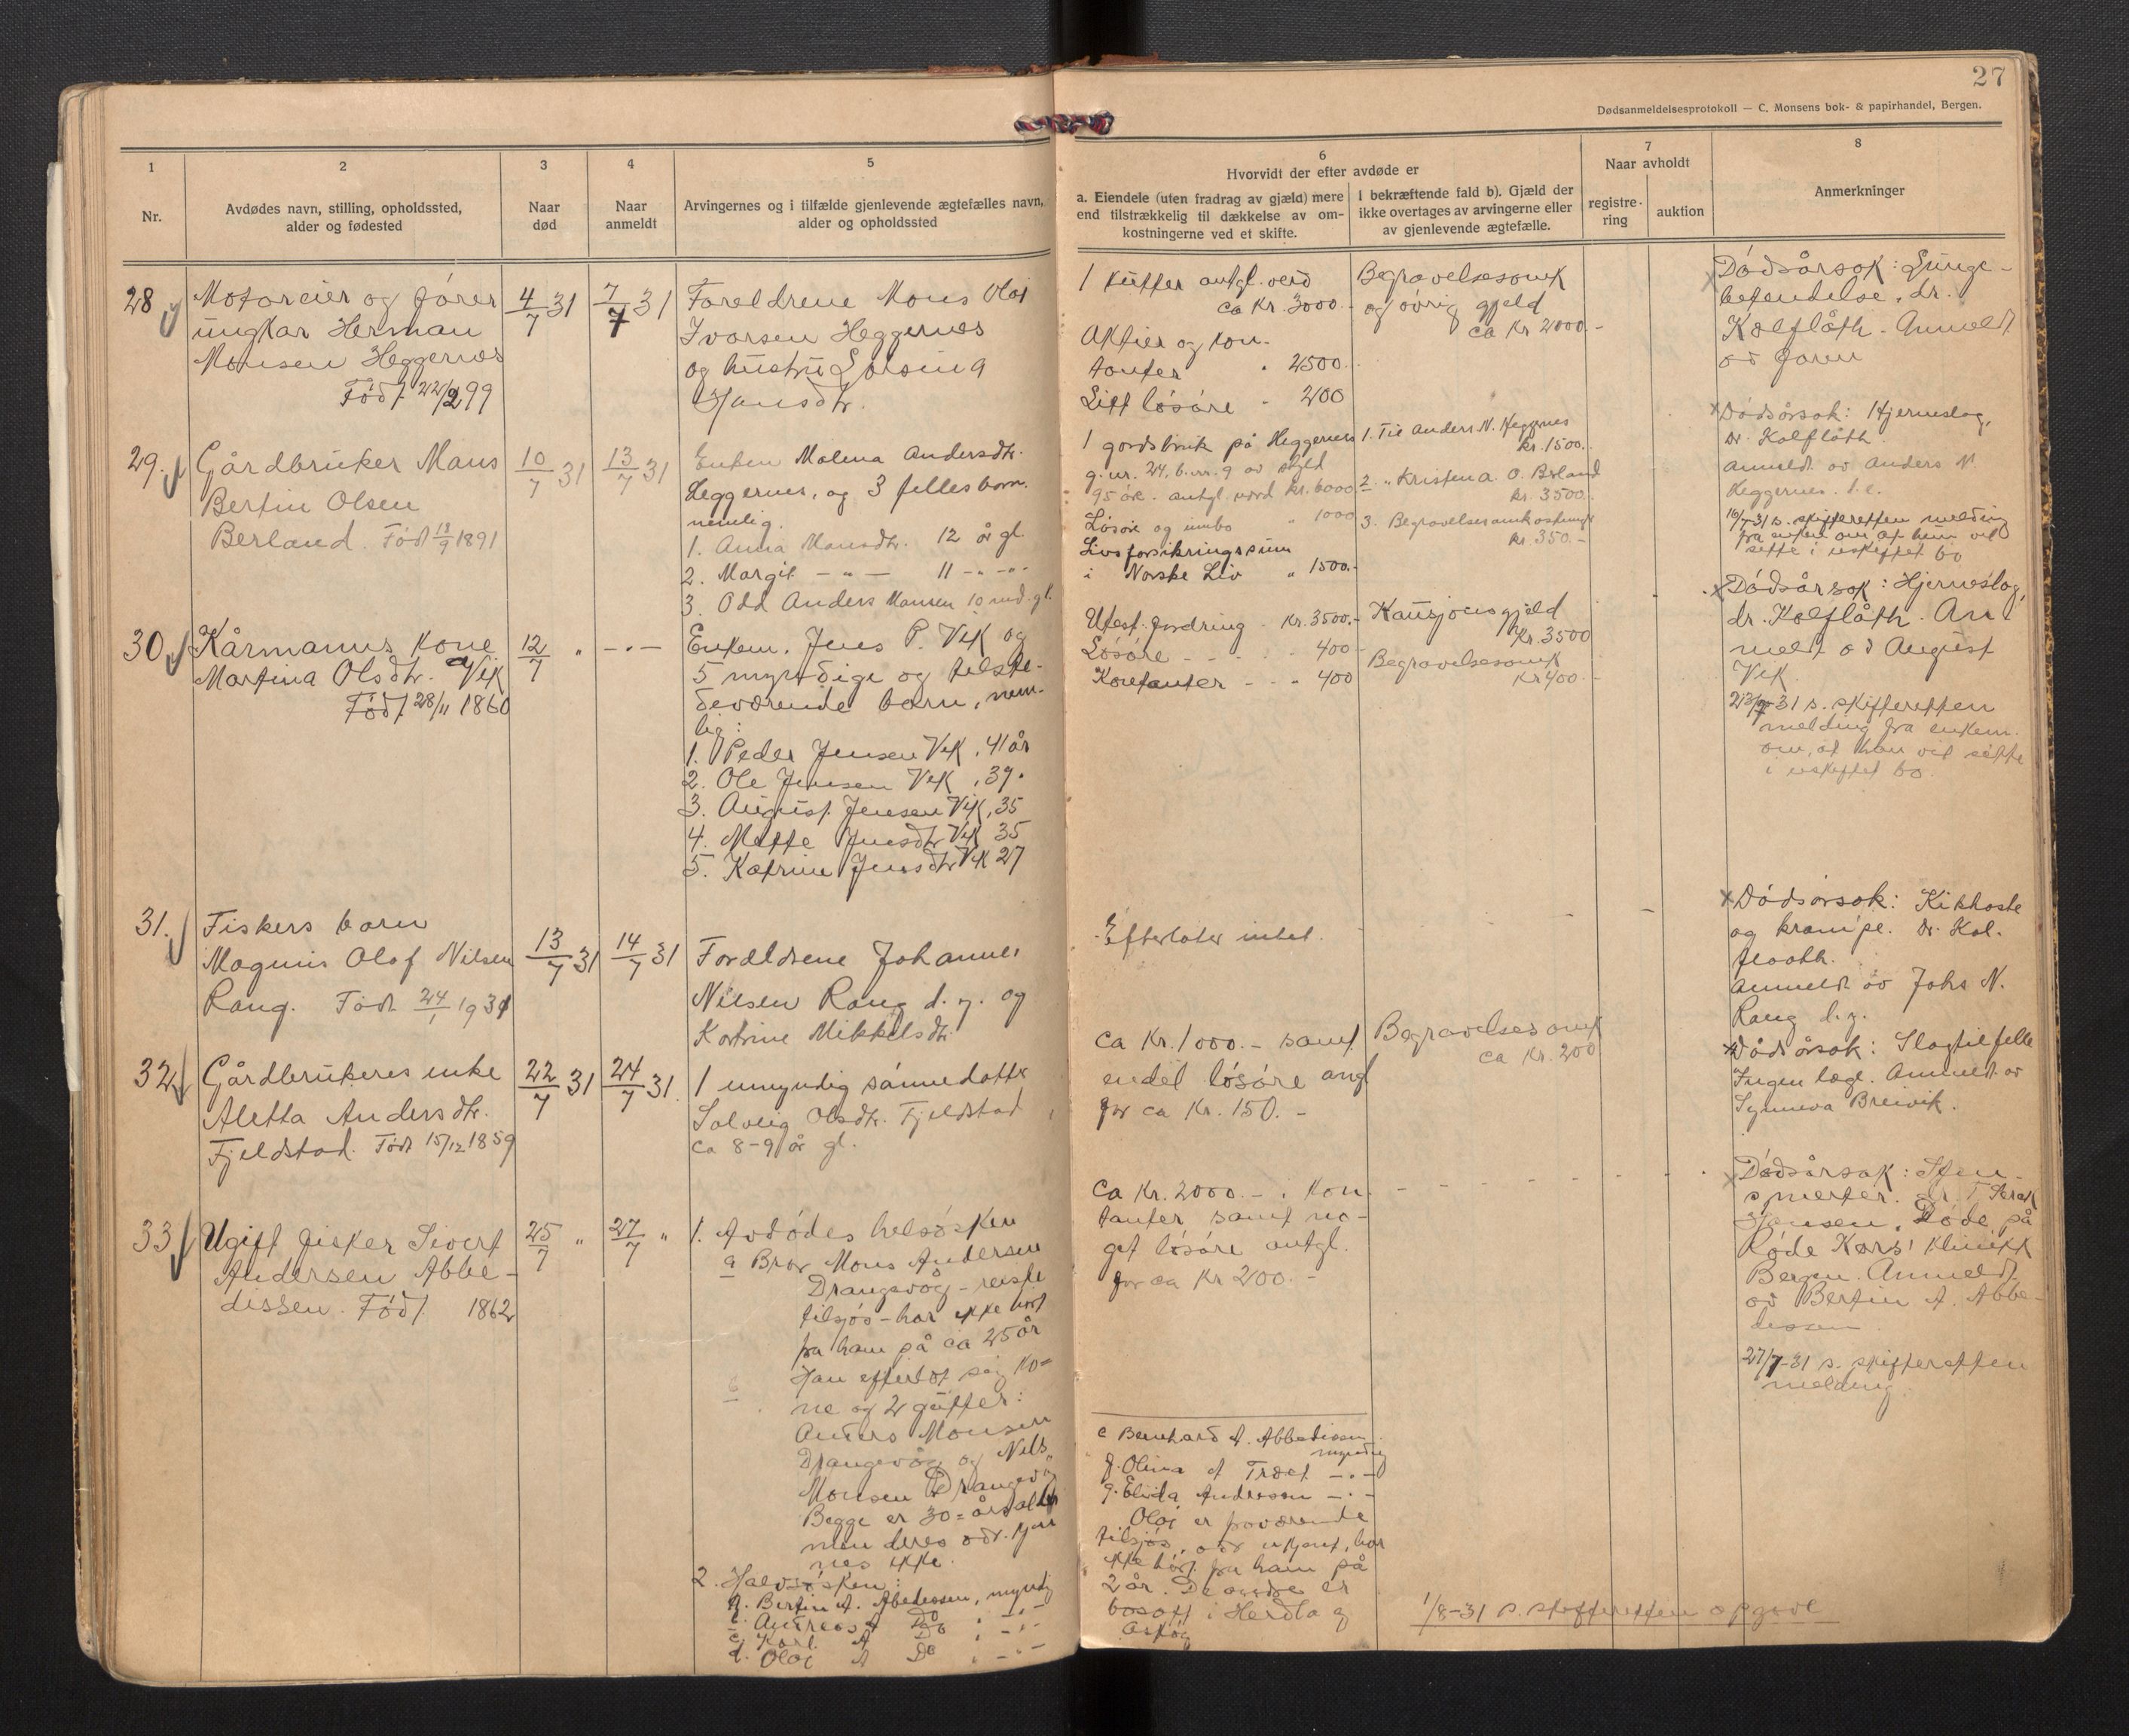 27
Dødsanmeldelsesprotokoll — C. Monsens bok- & papirhandel, Bergen.
1
Nr.
2
Avdødes navn, stilling, opholdssted,
alder og fødested
3
Naar
død
4
Naar
anmeldt
5
Arvingernes og i tilfælde gjenlevende ægtefælles navn,
alder og opholdssted
6
Hvorvidt der efter avdøde er
a. Eiendele (uten fradrag av gjæld) mere
end tilstrækkelig til dækkelse av om-
kostningerne ved et skifte.
I bekræftende fald b). Gjæld der
ikke overtages av arvingerne eller
av gjenlevende ægtefælle.
7
Naar avholdt
registre-
ring
auktion
8
Anmerkninger
28
Motoreier og fører
ungkar Herman
Monsen Heggernes
Født 22/2 99
4/7 31
7/7 31
Foreldrene Mons Olai
Ivarsen Heggernes
og hustru
Hansdtr.
1 kutter antgl. verd
ca kr. 3000.-
Aktier og kon-
tanter " 2500.-
Litt løsøre - 200
Begravelsesomk
og øvrig gjeld
ca kr 2000.-
Dødsårsak: Lunge-
betendelse, dr.
Kolflåth. Anmeldt
av faren
29.
Gårdbruker Mons
Bertin Olsen
Berland. Født 18/9 1891
10/7 31
13/7 31
Enken Malena Andersdtr.
Heggernes, og 3 felles barn.
nemlig.
1. Anna Monsdtr. 12 år gl.
2. Margit - " - 11 - " -
3. Odd Anders Monsen 10 mnd. gl.
1 gårdsbruk på Heggernes
g. nr. 24, b. nr. 9 av skyld
95 øre. antgl. verd kr. 6000
Løsøre og innbo " 1000
Livsforsikringssum
i Norske Liv " 1500.-
1. Til Anders N. Heggernes
kr. 1500.-
2. " Kristen A. O. Berland
kr. 3500.-
3. Begravelsesomkostninger
kr. 350.-
Dødsårsak: Hjerneslag,
Dr. Kolflåth.
Anmeldt av Anders N.
Heggernes.
16/7-31 s. skifteretten melding
fra enken om at hun vil
sitte i uskiftet bo
30
Kårmanns kone
Martina Olsdtr. Vik
Født 28/11 1860
12/7 "
- " -
Enkem. Jens P. Vik og
5 myndige og tilste-
deværende barn, nem-
lig:
1. Peder Jensen Vik, 41 år
2. Ole Jensen Vik, 39.
3. August Jensen Vik, 35
4. Mette Jensdtr Vik 35
5. Katrine Jensdtr Vik 27
Utest. fordring - kr. 3500.-
Løsøre - - - - 400-
Kontanter - - " 400
Kausjonsgjeld
kr. 3500
Begravelsesomk
kr 400.-
Dødsårsak: Hjerneslag,
dr. Kolflåth. An-
meldt av August
Vik.
22/7-31 s. skifteretten
melding fra enkem.
om, at han vil sitte
i uskiftet bo.
31.
Fiskers barn
Magnus Olaf Nilsen
Rong. Født 24/1 1931
13/7 31
14/7 31
Foreldrene Johannes
Nilsen Rong d. y. og
Katrine Mikkelsdtr
Efterlater intet.
Dødsårsak: Kikhoste
og krampe. Dr. Kol-
flaath.
Anmeldt av Johs N.
Rong d. y.
32
Gårdbrukeres enke
Aletta Andersdtr.
Fjeldstad. Født 15/12 1859
22/7 31
24/7 31.
1 umyndig sønnedatter
Solveig Olsdtr. Fjeldstad
ca 8-9 år gl.
Ca kr. 1000.- samt
endel løsøre antgl
for ca kr. 150.-
Begravelsesomk
ca kr. 200
Dødsårsak: Slagtilfelle
Ingen læge. Anmeldt av
Synneva Breivik.
33
Ugift fisker Sivert
Andersen Abbe-
dissen. Født 1862
25/7 "
27/7 "
1. Avdødes helsøsken
a Bror Mons Andersen
Drangsvåg - reiste
tilsjøs - har ikke hørt
fra ham på ca 25 år
Han efterlot sig ko-
ne og 2 gutter:
Anders Monsen
Drangsvåg og Nils
Monsen Drangsvåg
Begge er 30-års alder
men deres adr. kjen-
nes ikke.
2. Halvsøsken:
a. Bertin A. Abedissen, myndig
b. Andreas A Do " - " -
c. Karl A Do " - " -
d. Olai A Do " - " -
Ca kr. 2000.- i kon-
tanter samt no-
get løsøre antgl.
for ca kr 200.-
e Bernhard A. Abbedissen
myndig
f. Olina A Træet - " -
g. Elida Andersen - " -
Olai er fraværende
tilsjøs, adr ukjent, har
ikke hørt fra ham på
2 år. De andre er
bosatt i Herdla og
Askøy
Dødsårsak:
smerter. dr.
Hansen. Døde på
Røde Kors' klinikk
Bergen. Anmeldt
av Bertin A. Abbe-
dissen
27/7-31 s. skifteretten
melding.
1/8-31 s. skifteretten opgave